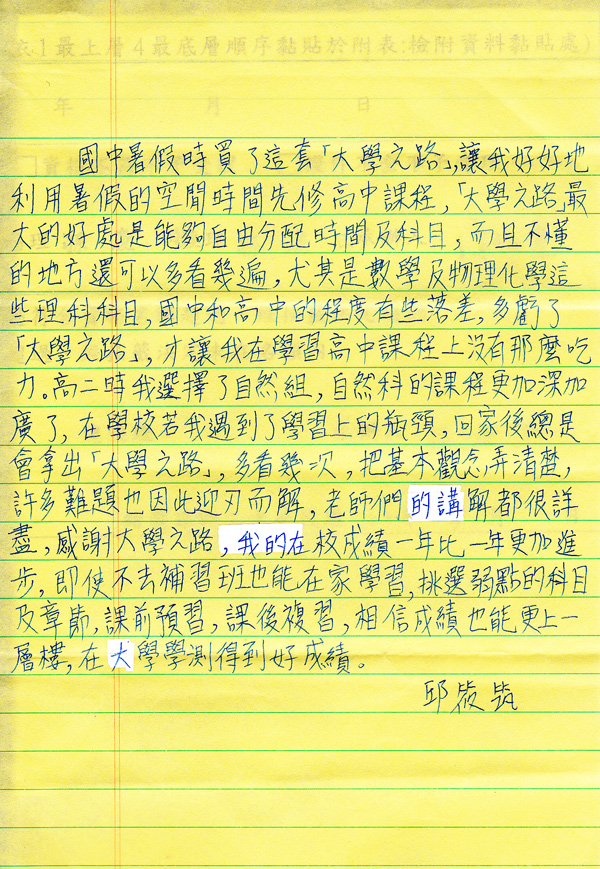 忘1最上層4最底層順序黏貼於附表:檢附資料黏貼處)
年 月 日
國中暑假時買了這套「大學之路」,讓我好好地
利用暑假的空閒時間先修高中課程,「大學之路」最
大的好處是能夠自由分配時間及科目,而且不懂
的地方還可以多看幾遍,尤其是數學及物理化學這
些理科科目,國中和高中的程度有些落差,多虧了
「大學之路」,才讓我在學習高中課程上沒有那麼吃
力。高二時我選擇了自然組,自然科的課程更加深加
廣了,在學校若我遇到了學習上的瓶頸,回家後總是
會拿出「大學之路」,多看幾次,把基本觀念弄清楚,
許多難題也因此迎刃而解,老師們的講解都很詳
盡,感謝大學之路,我的在校成績一年比一年更加進
步,即使不去補習班也能在家學習,挑選弱點的科目
及章節,課前預習,課後複習,相信成績也能更上一
層樓,在大學學測得到好成績。
邱筱筑